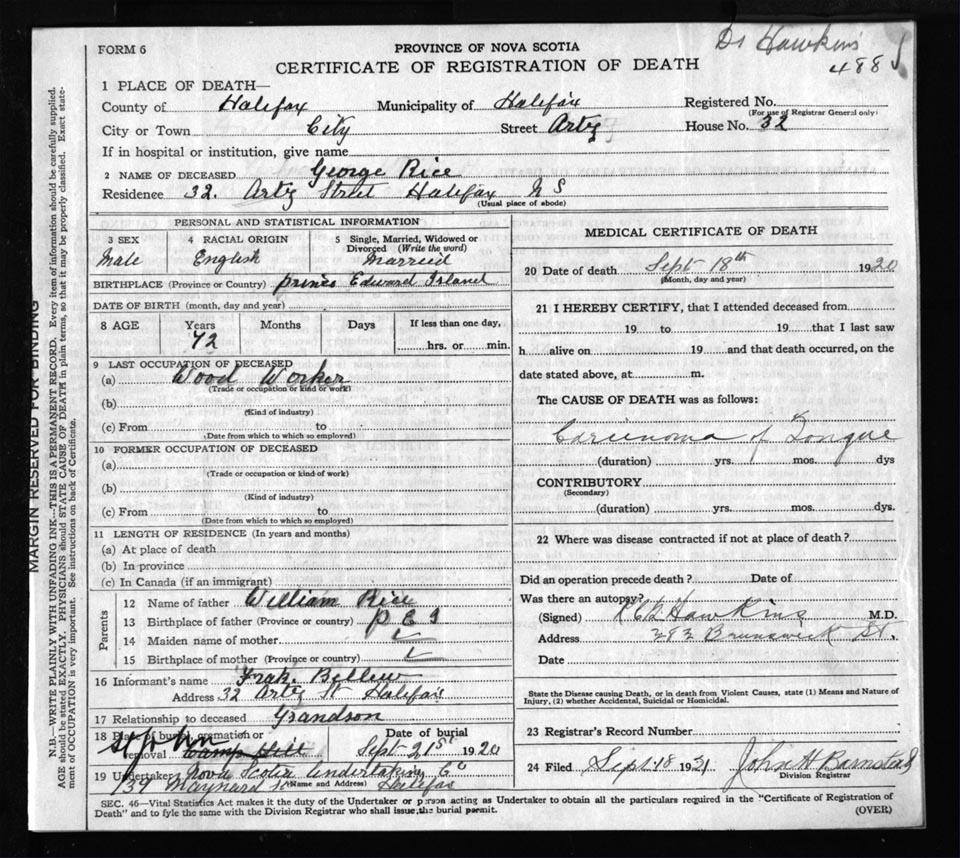 Dr Hawkins
488
FORM 6
PROVINCE OF NOVA SCOTIA
CERTIFICATE OF REGISTRATION OF DEATH
1 PLACE OF DEATH—
County of Halifax Municipality of Halifax Registered No.
(For use of Registrar General only)
City or Town City Street Artz House No. 32
If in hospital or institution, give name
2 NAME OF DECEASED George Rice
Residence 32. Artz Street Halifax N S
(Usual place of abode)
PERSONAL AND STATISTICAL INFORMATION
3 SEX 4 RACIAL ORIGIN 5 Single, Married, Widowed or
Divorced (Write the word)
Male English Married
BIRTHPLACE (Province or Country) Prince Edward Island
DATE OF BIRTH (month, day and year)
8 AGE Years Months Days If less than one day,
72 hrs. or min.
9 LAST OCCUPATION OF DECEASED
(a) Wood Worker
(Trade or occupation or kind or work)
(b)
(Kind of industry)
(c) From to
(Date from which to which so employed)
10 FORMER OCCUPATION OF DECEASED
(a)
(Trade or occupation or kind of work)
(b)
(Kind of industry)
(c) From to
(Date from which to which so employed)
11 LENGTH OF RESIDENCE (In years and months)
(a) At place of death
(b) In province
(c) In Canada (if an immigrant)
Parents
12 Name of father William Rice
13 Birthplace of father (Province or country) P E I
14 Maiden name of mother
15 Birthplace of mother (Province or country)
16 Informant's name Frak. Bellew
Address 32 Artz St Halifax
17 Relationship to deceased Grandson
18 Place of burial, cremation or Date of burial
removal Camp Hill Sept 21st 1920
19 Undertaker Nova Scotia Undertaking Co
(Name and Address)
139 Maynard St Halifax
MEDICAL CERTIFICATE OF DEATH
20 Date of death Sept 18th 1920
(Month, day and year)
21 I HEREBY CERTIFY, that I attended deceased from
19 to 19 that I last saw
h alive on 19 and that death occurred, on the
date stated above, at m.
The CAUSE OF DEATH was as follows:
Carcinoma of Tongue
(duration) yrs. mos. dys
CONTRIBUTORY
(Secondary)
(duration) yrs. mos. dys.
22 Where was disease contracted if not at place of death?
Did an operation precede death? Date of
Was there an autopsy?
(Signed) Hawkins M.D.
Address 282 Brunswick St.
Date
State the Disease causing Death, or in death from Violent Causes, state (1) Means and Nature of
Injury, (2) whether Accidental, Suicidal or Homicidal.
23 Registrar's Record Number
24 Filed Sept. 18 1921 John H Barnstead
Division Registrar
SEC. 46—Vital Statistics Act makes it the duty of the Undertaker or person acting as Undertaker to obtain all the particulars required in the "Certificate of Registration of
Death" and to fyle the same with the Division Registrar who shall issue the burial permit.
(OVER)
MARGIN RESERVED FOR BINDING
N.B.—WRITE PLAINLY WITH UNFADING INK—THIS IS A PERMANENT RECORD. Every item of information should be carefully supplied.
AGE should be stated EXACTLY. PHYSICIANS should STATE CAUSE OF DEATH in plain terms, so that it may be properly classified. Exact state-
ment of OCCUPATION is very important. See instructions on back of Certificate.